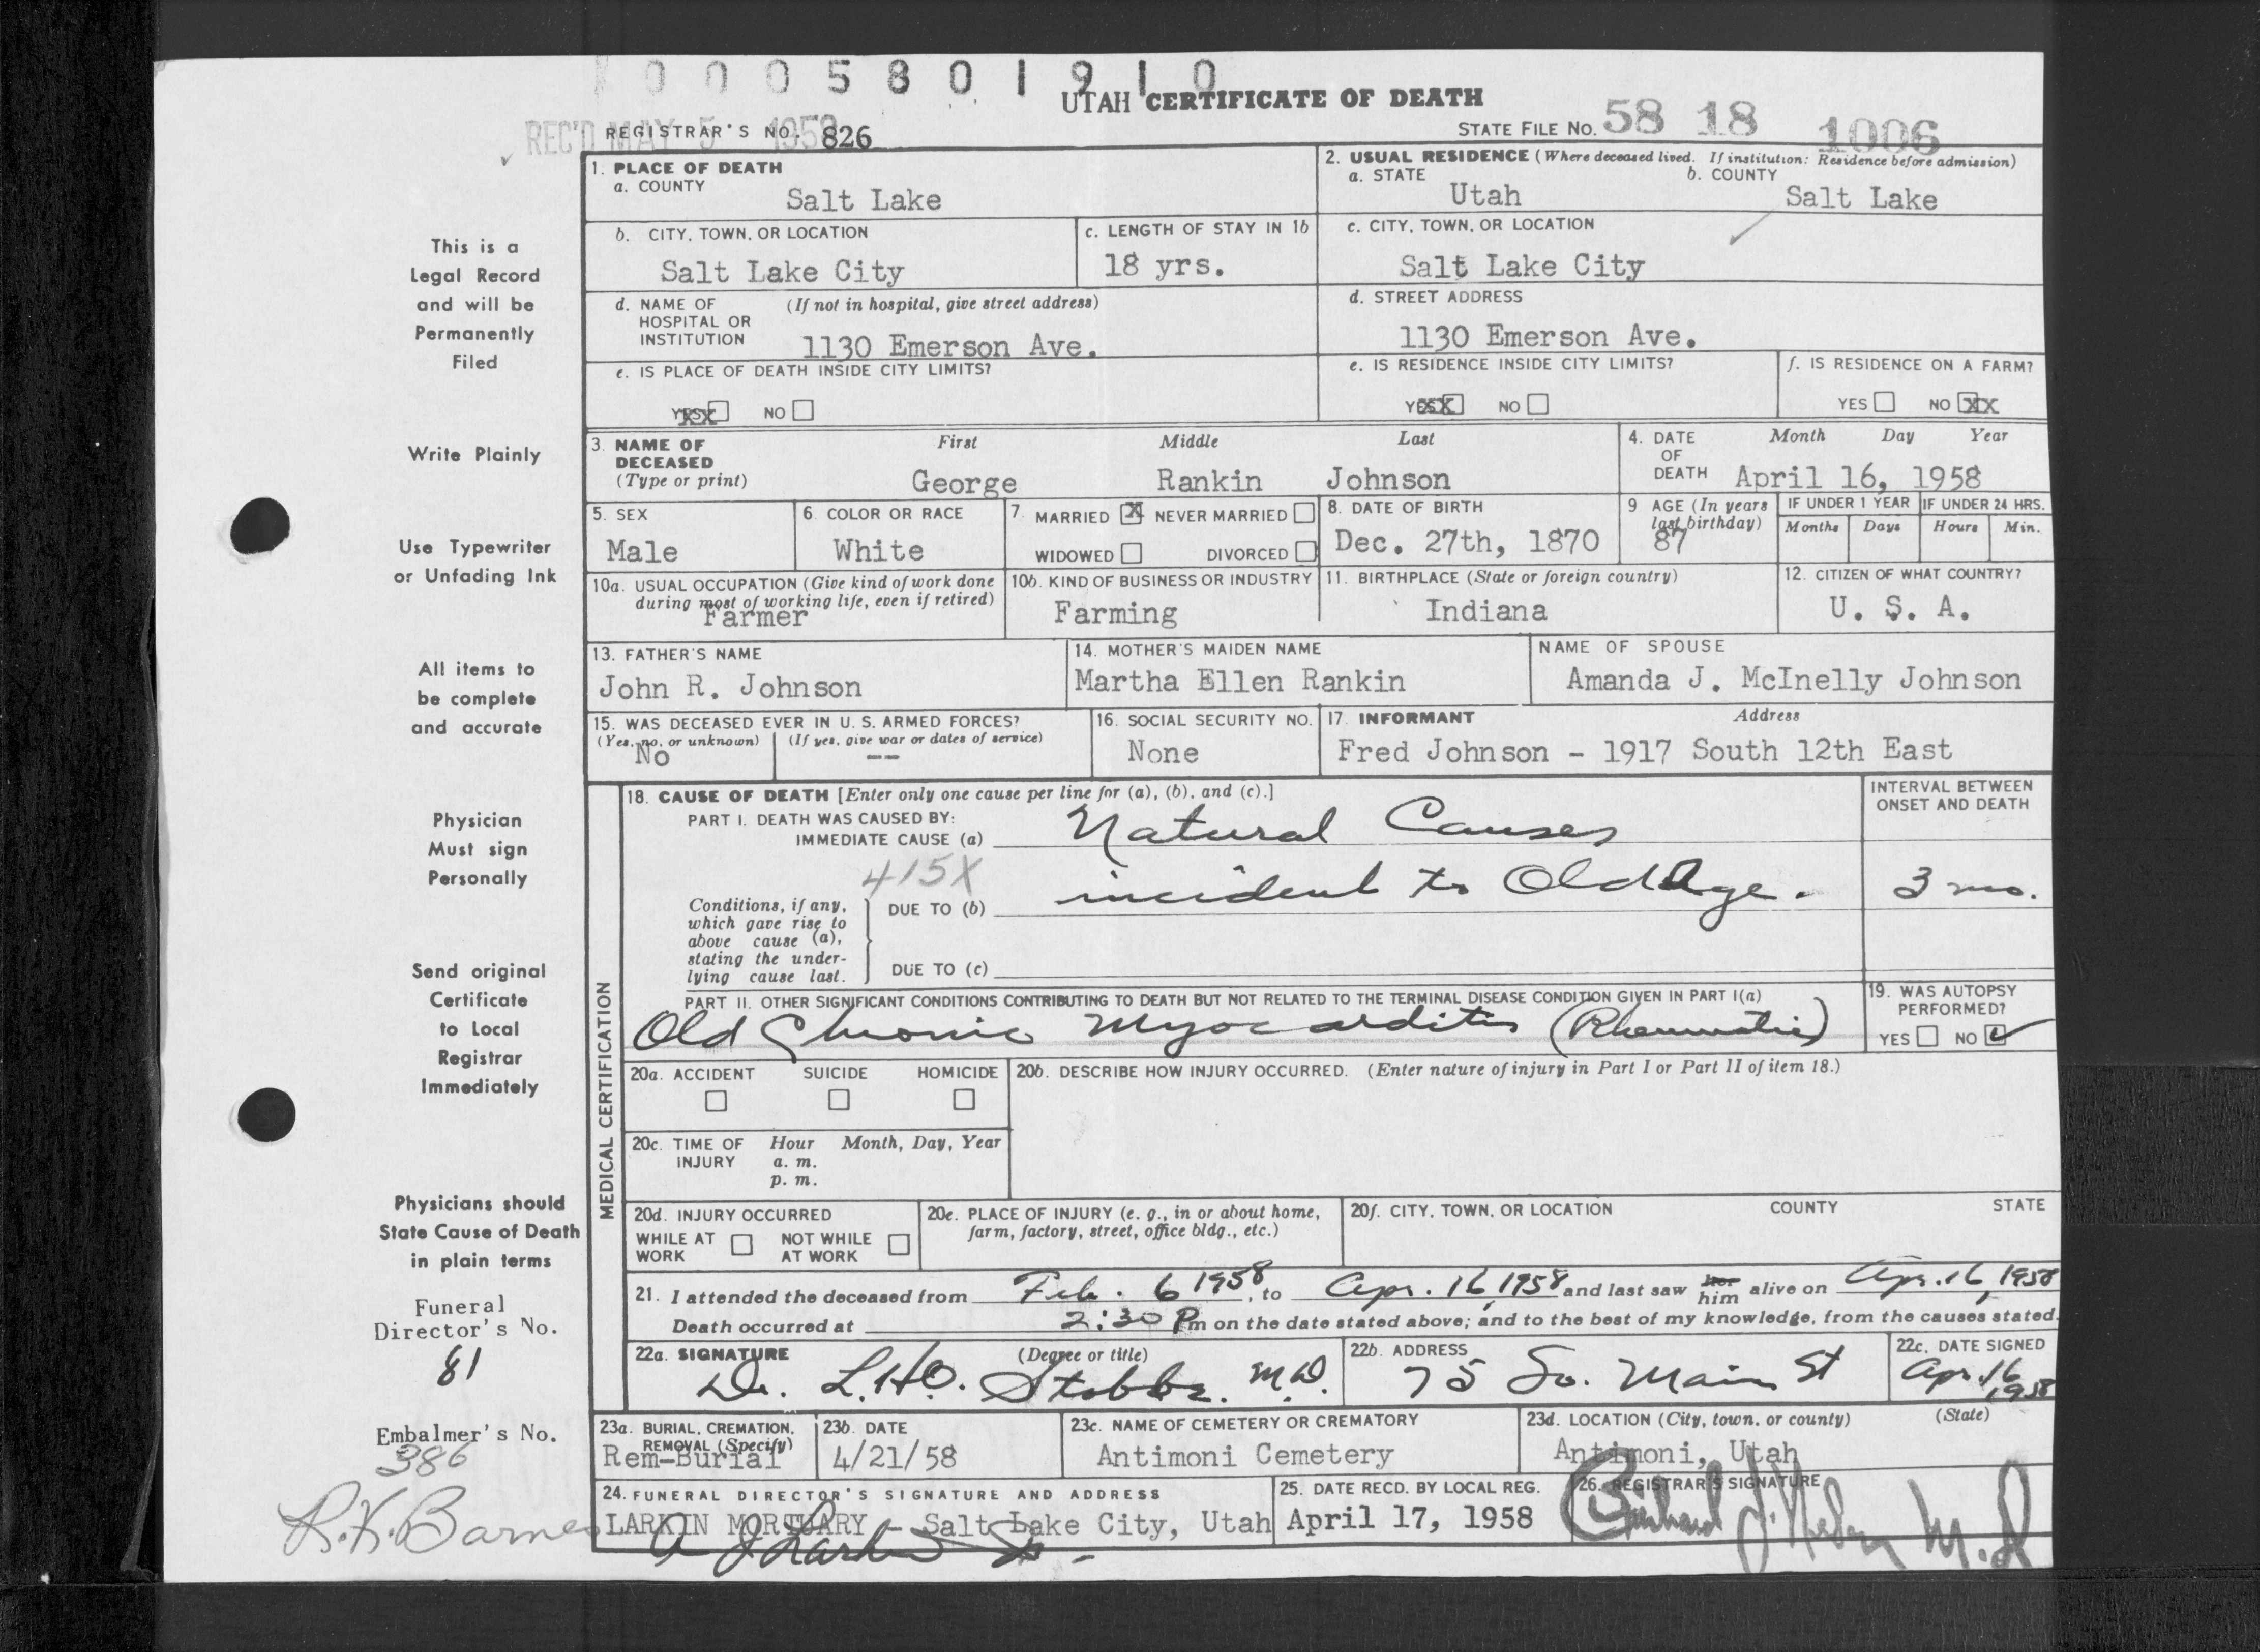 0005801910
UTAH CERTIFICATE OF DEATH
REC'D MAY 5 1958 REGISTRAR'S NO. 826 STATE FILE NO. 58 18 1006
1. PLACE OF DEATH
a. COUNTY Salt Lake
2. USUAL RESIDENCE (Where deceased lived. If institution: Residence before admission)
a. STATE Utah b. COUNTY Salt Lake
b. CITY, TOWN, OR LOCATION Salt Lake City
c. LENGTH OF STAY IN 1b 18 yrs.
c. CITY, TOWN, OR LOCATION Salt Lake City
d. NAME OF HOSPITAL OR INSTITUTION (If not in hospital, give street address) 1130 Emerson Ave.
d. STREET ADDRESS 1130 Emerson Ave.
e. IS PLACE OF DEATH INSIDE CITY LIMITS?
YES XX NO
e. IS RESIDENCE INSIDE CITY LIMITS?
YES XX NO
f. IS RESIDENCE ON A FARM?
YES NO XX
3. NAME OF DECEASED (Type or print)
First Middle Last
George Rankin Johnson
4. DATE OF DEATH Month Day Year
April 16, 1958
5. SEX Male
6. COLOR OR RACE White
7. MARRIED X NEVER MARRIED
WIDOWED DIVORCED
8. DATE OF BIRTH Dec. 27th, 1870
9 AGE (In years last birthday) 87
IF UNDER 1 YEAR Months Days
IF UNDER 24 HRS. Hours Min.
10a. USUAL OCCUPATION (Give kind of work done during most of working life, even if retired) Farmer
10b. KIND OF BUSINESS OR INDUSTRY Farming
11. BIRTHPLACE (State or foreign country) Indiana
12. CITIZEN OF WHAT COUNTRY? U. S. A.
13. FATHER'S NAME John R. Johnson
14. MOTHER'S MAIDEN NAME Martha Ellen Rankin
NAME OF SPOUSE Amanda J. McInelly Johnson
15. WAS DECEASED EVER IN U. S. ARMED FORCES?
(Yes, no, or unknown) No
(If yes, give war or dates of service) --
16. SOCIAL SECURITY NO. None
17. INFORMANT Address
Fred Johnson - 1917 South 12th East
MEDICAL CERTIFICATION
18. CAUSE OF DEATH [Enter only one cause per line for (a), (b), and (c).]
INTERVAL BETWEEN ONSET AND DEATH
PART I. DEATH WAS CAUSED BY:
IMMEDIATE CAUSE (a) Natural Causes
415X
Conditions, if any, which gave rise to above cause (a), stating the underlying cause last.
DUE TO (b) incident to Old Age. 3 mo.
DUE TO (c)
PART II. OTHER SIGNIFICANT CONDITIONS CONTRIBUTING TO DEATH BUT NOT RELATED TO THE TERMINAL DISEASE CONDITION GIVEN IN PART I(a)
Old Chronic Myocarditis (Rheumatic)
19. WAS AUTOPSY PERFORMED?
YES NO
20a. ACCIDENT SUICIDE HOMICIDE
20b. DESCRIBE HOW INJURY OCCURRED. (Enter nature of injury in Part I or Part II of item 18.)
20c. TIME OF INJURY Hour Month, Day, Year
a. m.
p. m.
20d. INJURY OCCURRED
WHILE AT WORK NOT WHILE AT WORK
20e. PLACE OF INJURY (e. g., in or about home, farm, factory, street, office bldg., etc.)
20f. CITY, TOWN, OR LOCATION COUNTY STATE
21. I attended the deceased from Feb. 6 1958, to Apr. 16, 1958 and last saw her him alive on Apr. 16, 1958
Death occurred at 2:30 Pm on the date stated above; and to the best of my knowledge, from the causes stated.
22a. SIGNATURE (Degree or title)
Dr. L.H.O. Stobbe. M.D.
22b. ADDRESS 75 So. Main St
22c. DATE SIGNED Apr. 16 1958
23a. BURIAL, CREMATION, REMOVAL (Specify) Rem-Burial
23b. DATE 4/21/58
23c. NAME OF CEMETERY OR CREMATORY Antimoni Cemetery
23d. LOCATION (City, town, or county) (State)
Antimoni, Utah
24. FUNERAL DIRECTOR'S SIGNATURE AND ADDRESS
LARKIN MORTUARY - Salt Lake City, Utah
25. DATE RECD. BY LOCAL REG. April 17, 1958
26. REGISTRAR'S SIGNATURE
M.D
This is a
Legal Record
and will be
Permanently
Filed
Write Plainly
Use Typewriter
or Unfading Ink
All items to
be complete
and accurate
Physician
Must sign
Personally
Send original
Certificate
to Local
Registrar
Immediately
Physicians should
State Cause of Death
in plain terms
Funeral
Director's No.
81
Embalmer's No.
386
R.K. Barnes